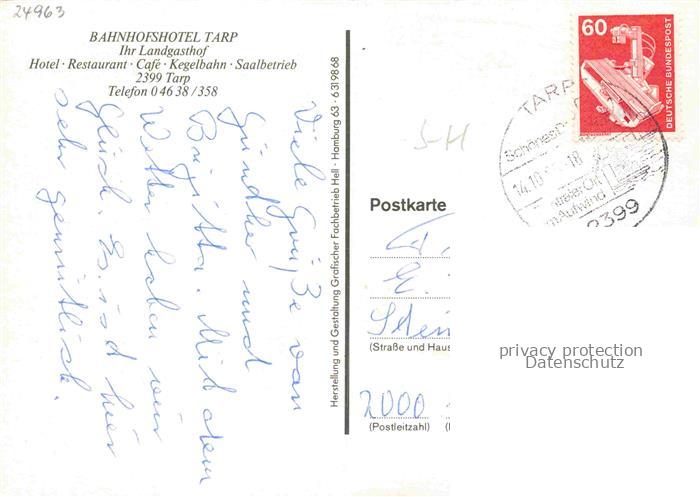 24963
BAHNHOFSHOTEL TARP
Ihr Landgasthof
Hotel · Restaurant · Café · Kegelbahn · Saalbetrieb
2399 Tarp
Telefon 0 46 38 / 358
Viele Grüße von
Günther und
Brigitte. Mit dem
Wetter haben wir
Glück. Es ist hier
sehr gemütlich.
Herstellung und Gestaltung Grafischer Fachbetrieb Heil · Hamburg 63 · 6 31 98 68
60
DEUTSCHE BUNDESPOST
TARP
14.10
18
im Aufwind
2399
S-H
Postkarte
(Straße und Haus
2000
(Postleitzahl)
privacy protection
Datenschutz